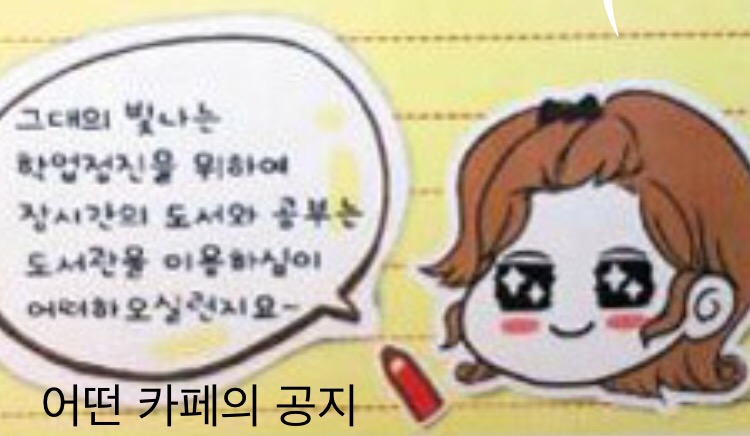 그대의 빛나는
학업정진을 위하여
장시간의 도서와 공부는
도서관을 이용하심이
어떠하오실런지요~
어떤 카페의 공지